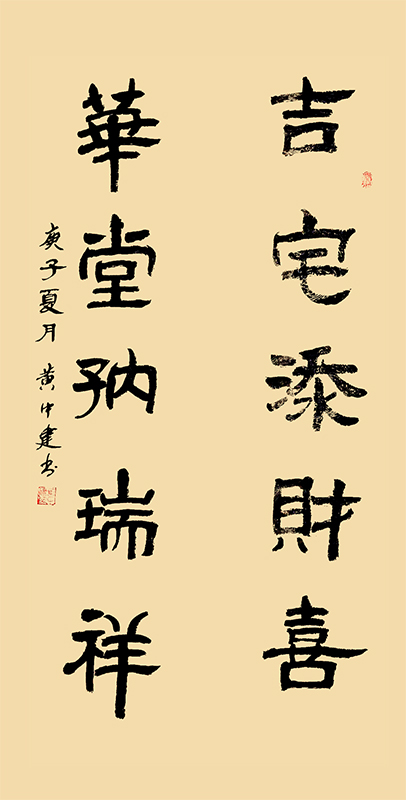 吉宅添財喜
華堂納瑞祥
庚子夏月 黄中建书